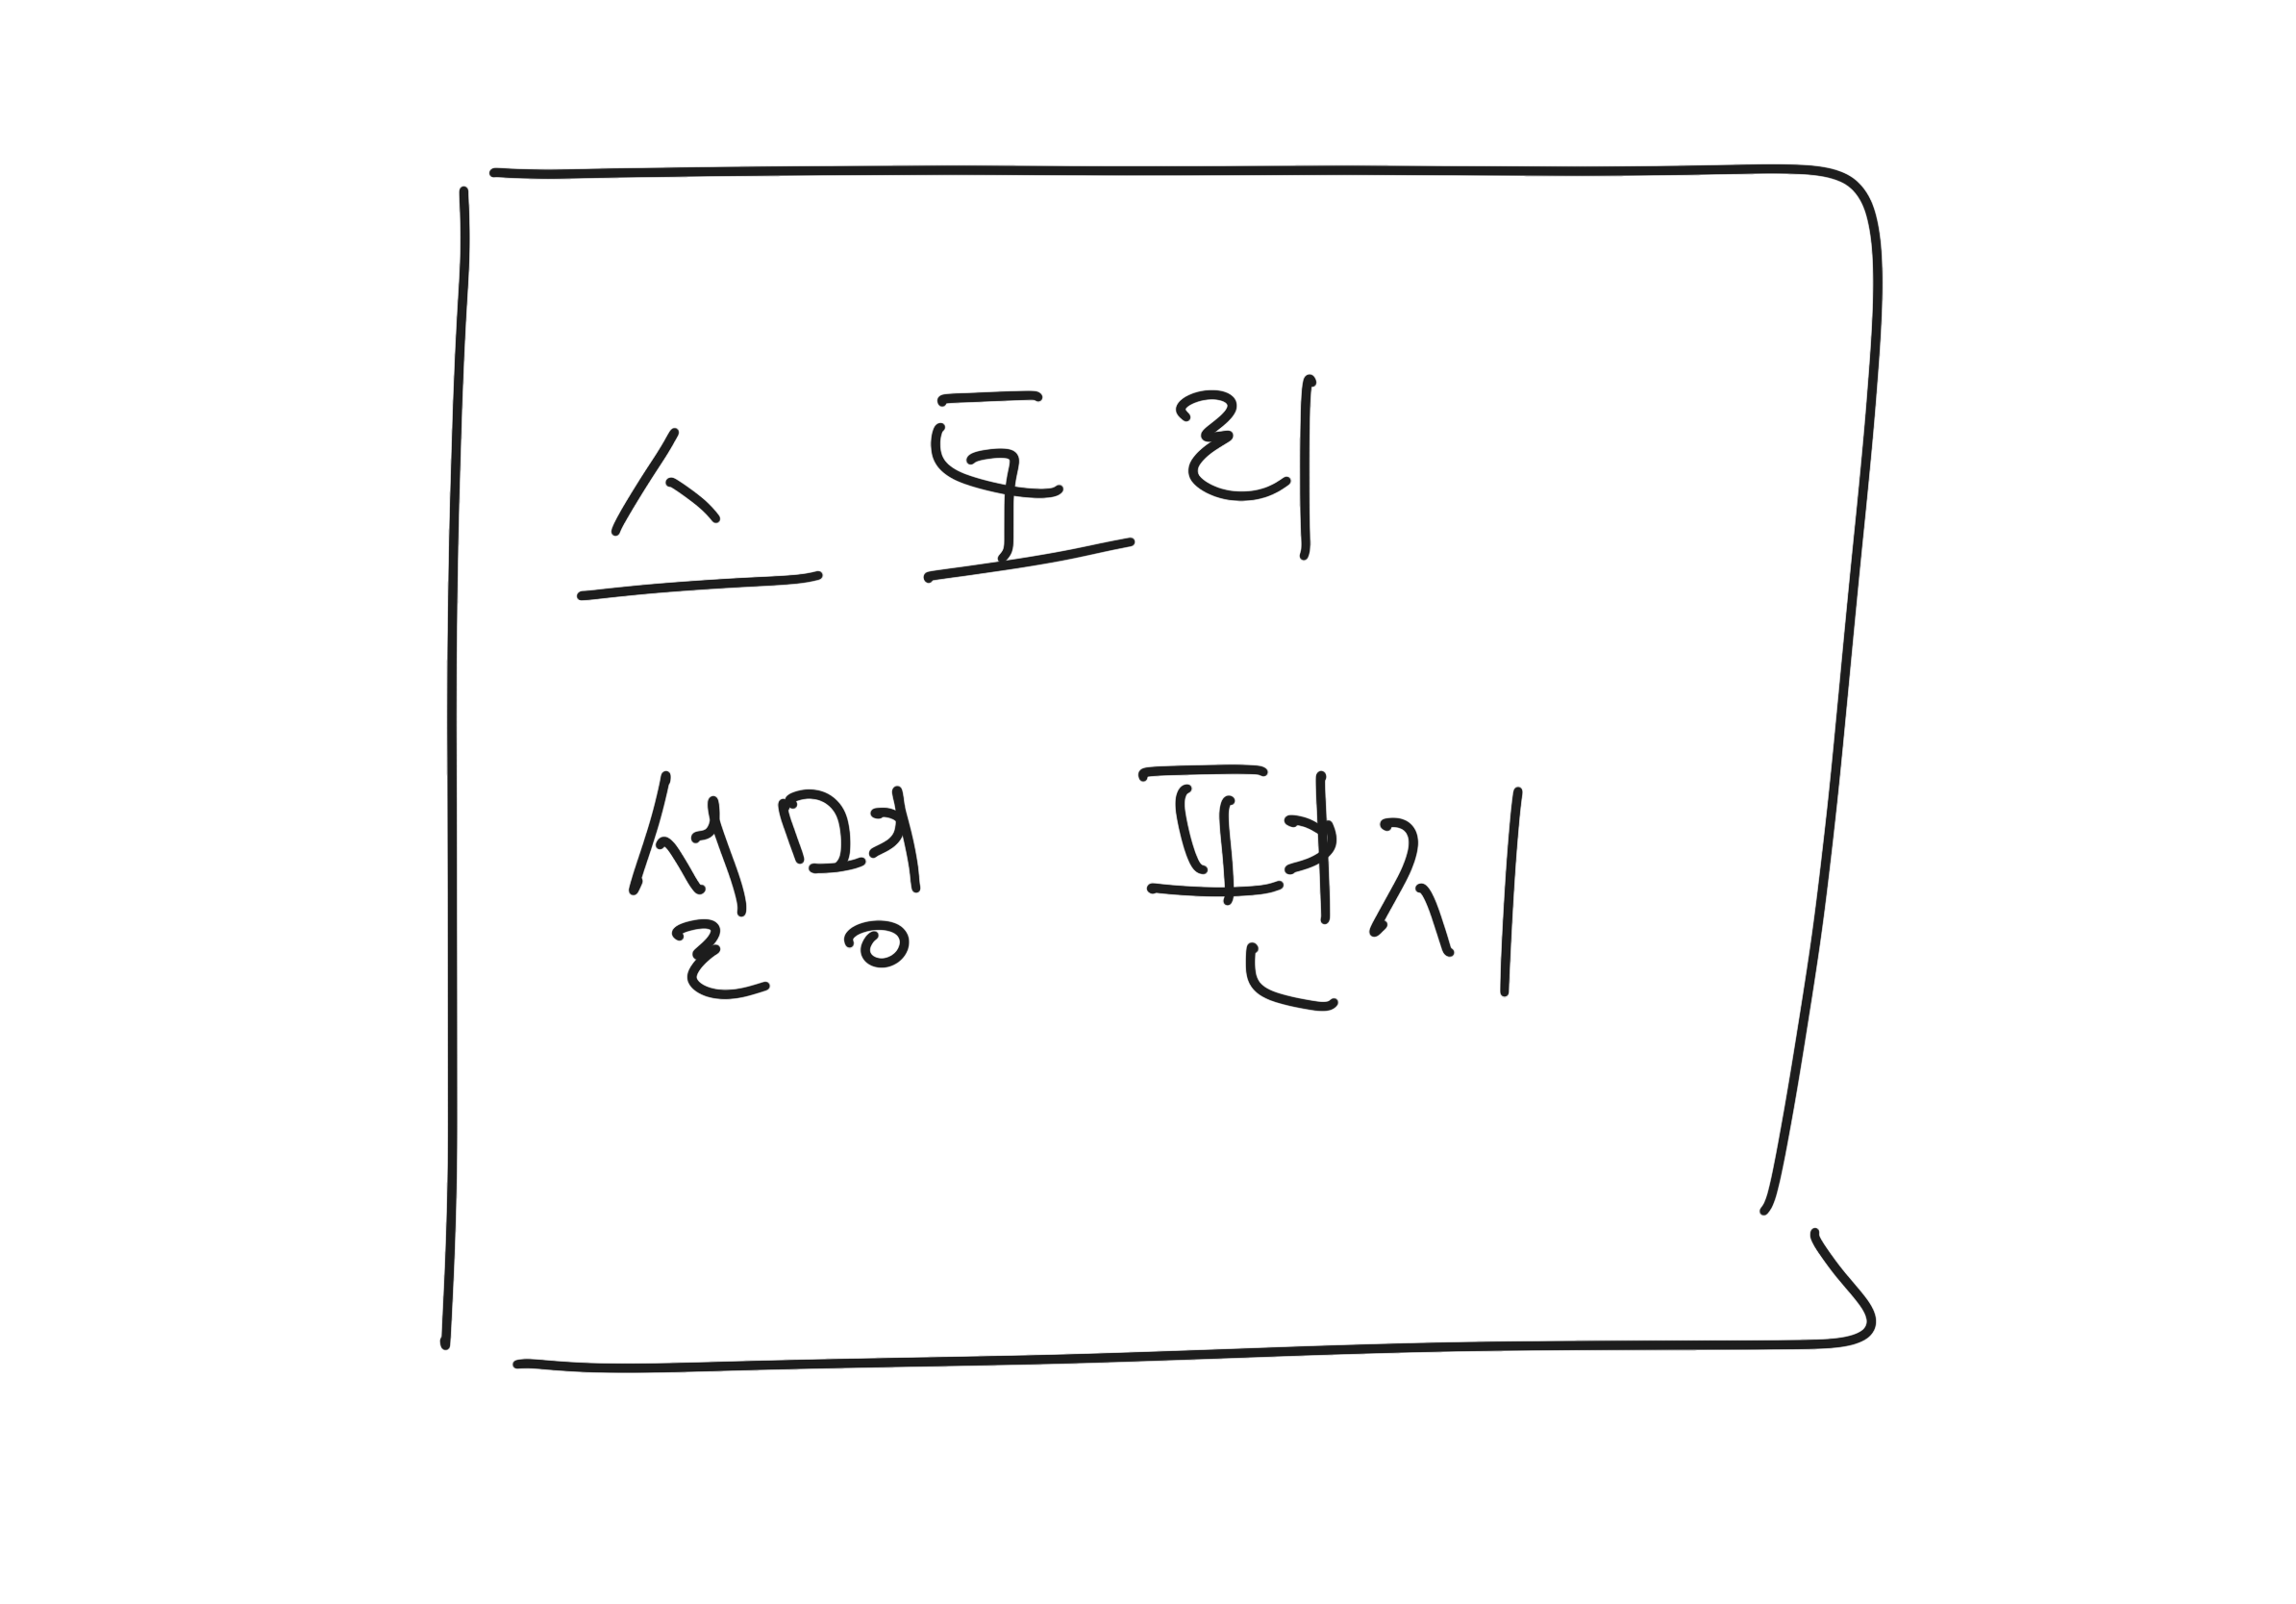 스토리
설명 편지